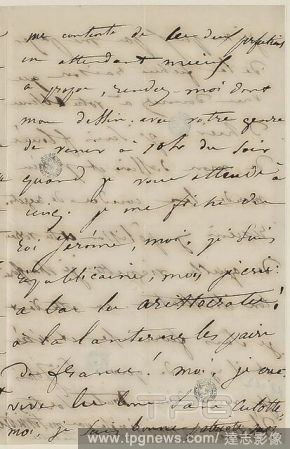 me contente de ces deux perfections
en attendant mieux
à propos, rendez-moi donc
mon dessin; avec votre genre
de venir à 10h du soir
quand je vous attends à
cinq, je me fiche du
roi jérôme, moi, je suis
républicaine, moi, je crie:
à bas les aristocrates!
à la lanterne les pairs
de france! moi, je crie
vive les culotte,
moi, je suis bonne patriote,
TPG
www.tpgnews.com 達志影像